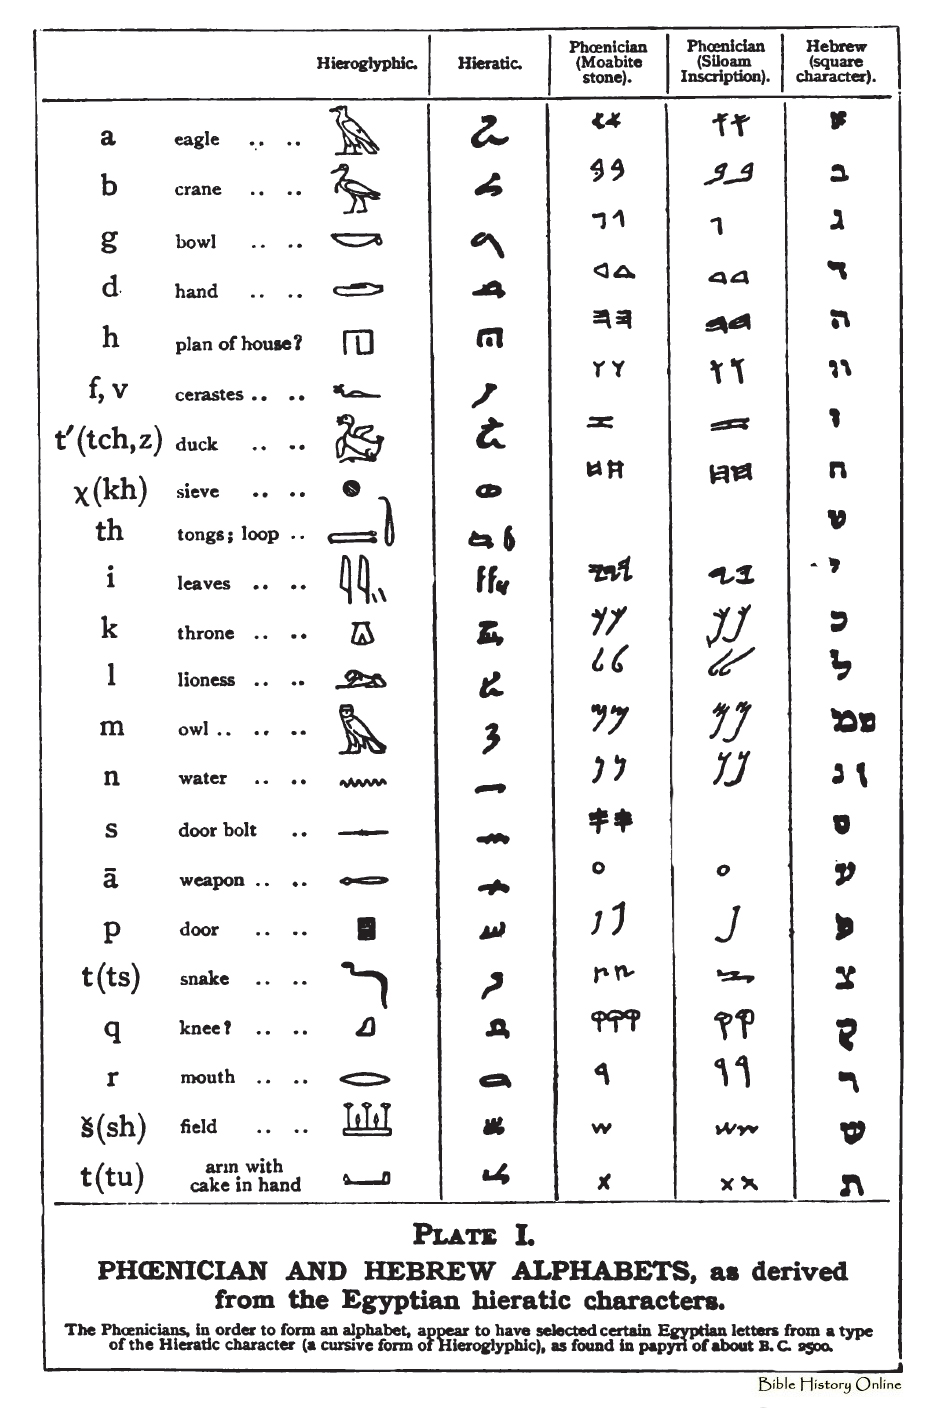 Hieroglyphic. Hieratic. Phœnician (Moabite stone). Phœnician (Siloam Inscription). Hebrew (square character).
a eagle .. .. א
b crane .. .. ב
g bowl .. .. ג
d hand .. .. ד
h plan of house? ה
f, v cerastes .. .. וו
t′(tch,z) duck .. .. ז
χ(kh) sieve .. .. ח
th tongs; loop .. ט
i leaves .. .. י
k throne .. .. כ
l lioness .. .. ל
m owl .. .. .. מם
n water .. .. נ ן
s door bolt .. ס
ā weapon .. .. ע
p door .. .. פ
t(ts) snake .. .. צ
q knee? .. .. ק
r mouth .. .. ר
š(sh) field .. .. ש
t(tu) arm with cake in hand ת
PLATE I.
PHŒNICIAN AND HEBREW ALPHABETS, as derived
from the Egyptian hieratic characters.
The Phœnicians, in order to form an alphabet, appear to have selected certain Egyptian letters from a type
of the Hieratic character (a cursive form of Hieroglyphic), as found in papyri of about B.C. 2500.
Bible History Online